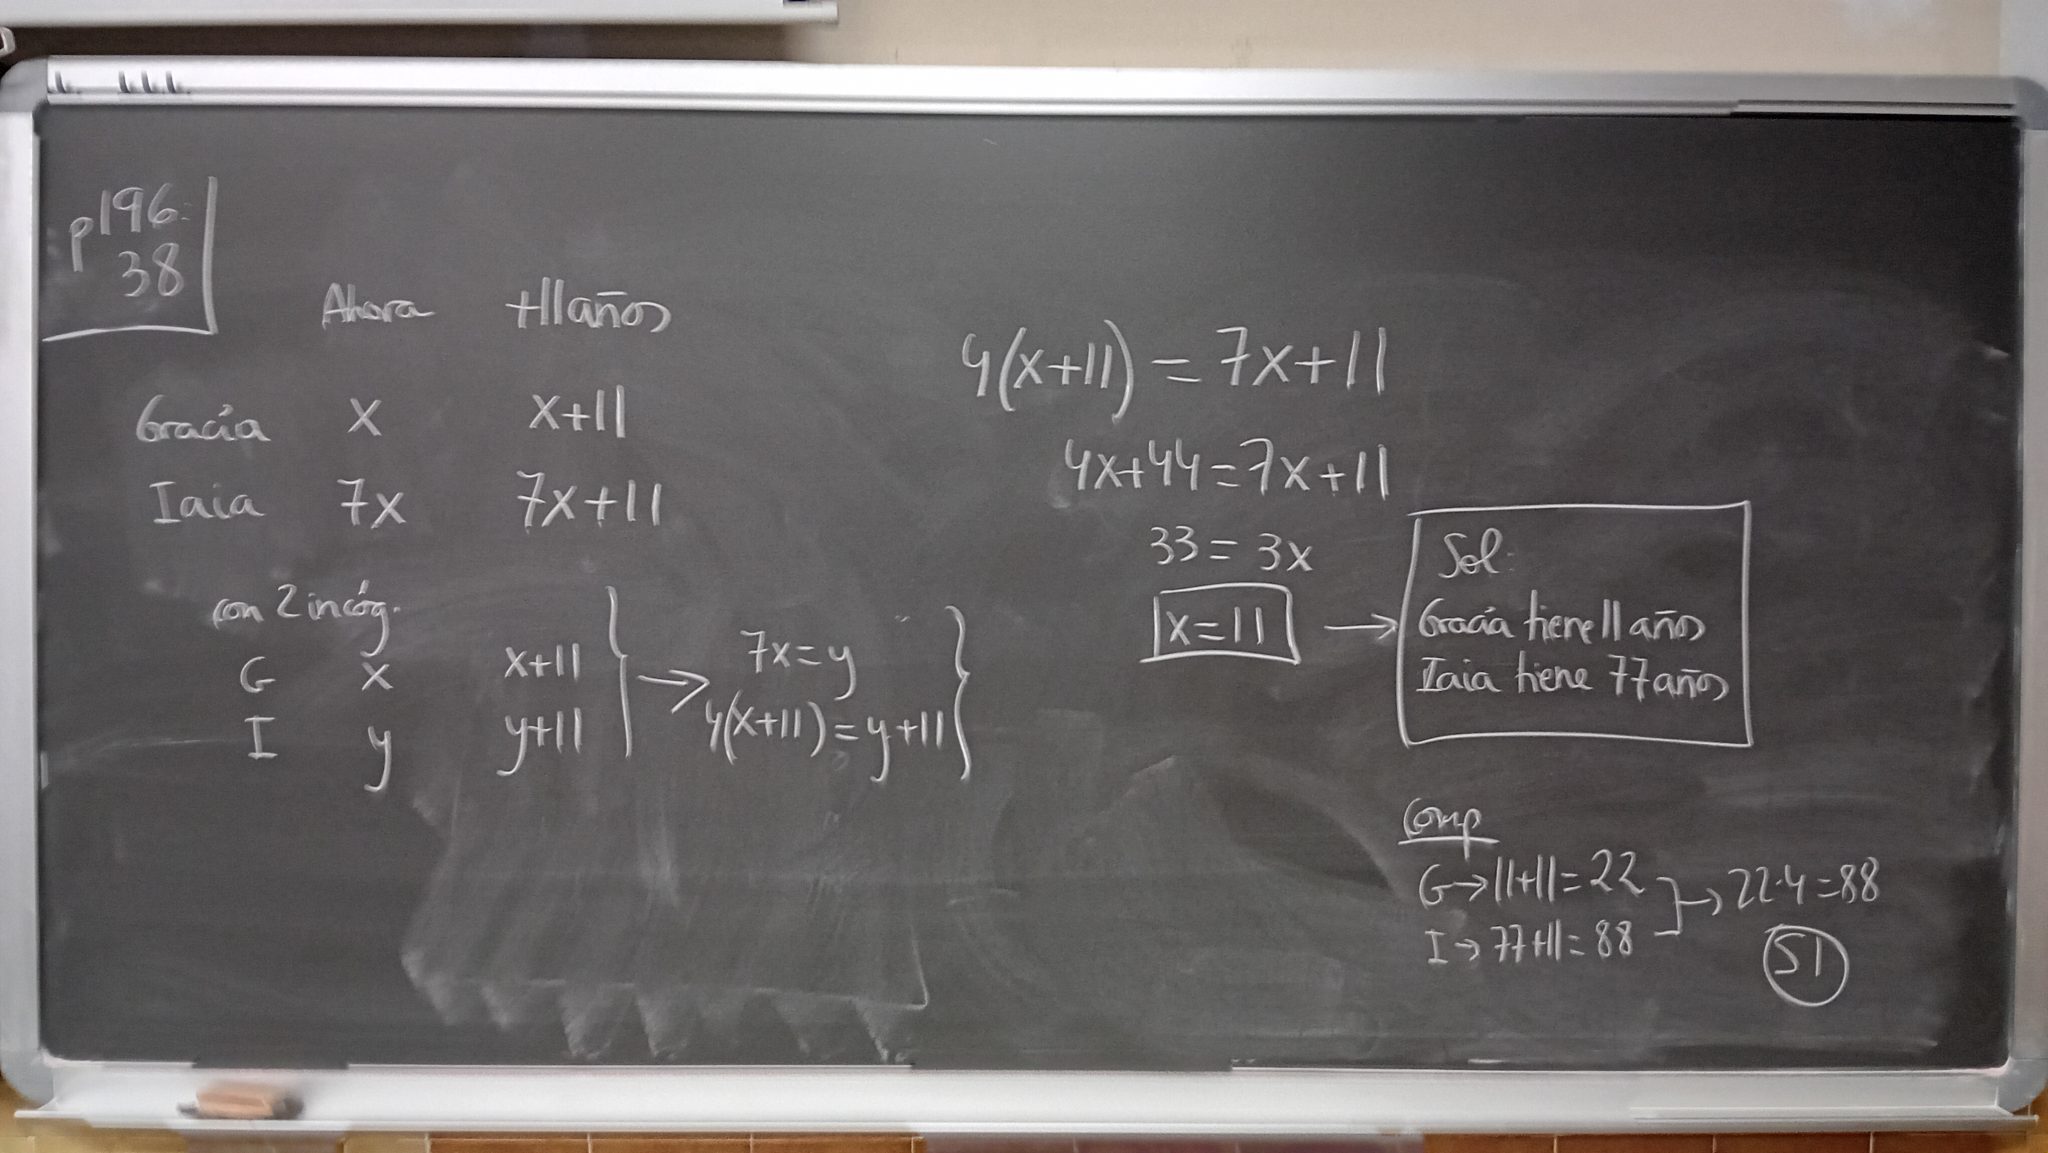 p196:
38
Ahora +11años
Gracia x x+11
Iaia 7x 7x+11
con 2 incóg.
G x x+11
I y y+11
7x=y
4(x+11)=y+11
4(x+11)=7x+11
4x+44=7x+11
33=3x
x=11
Sol:
Gracia tiene 11 años
Iaia tiene 77 años
Comp
G→11+11=22 → 22·4=88
I→77+11=88
SI